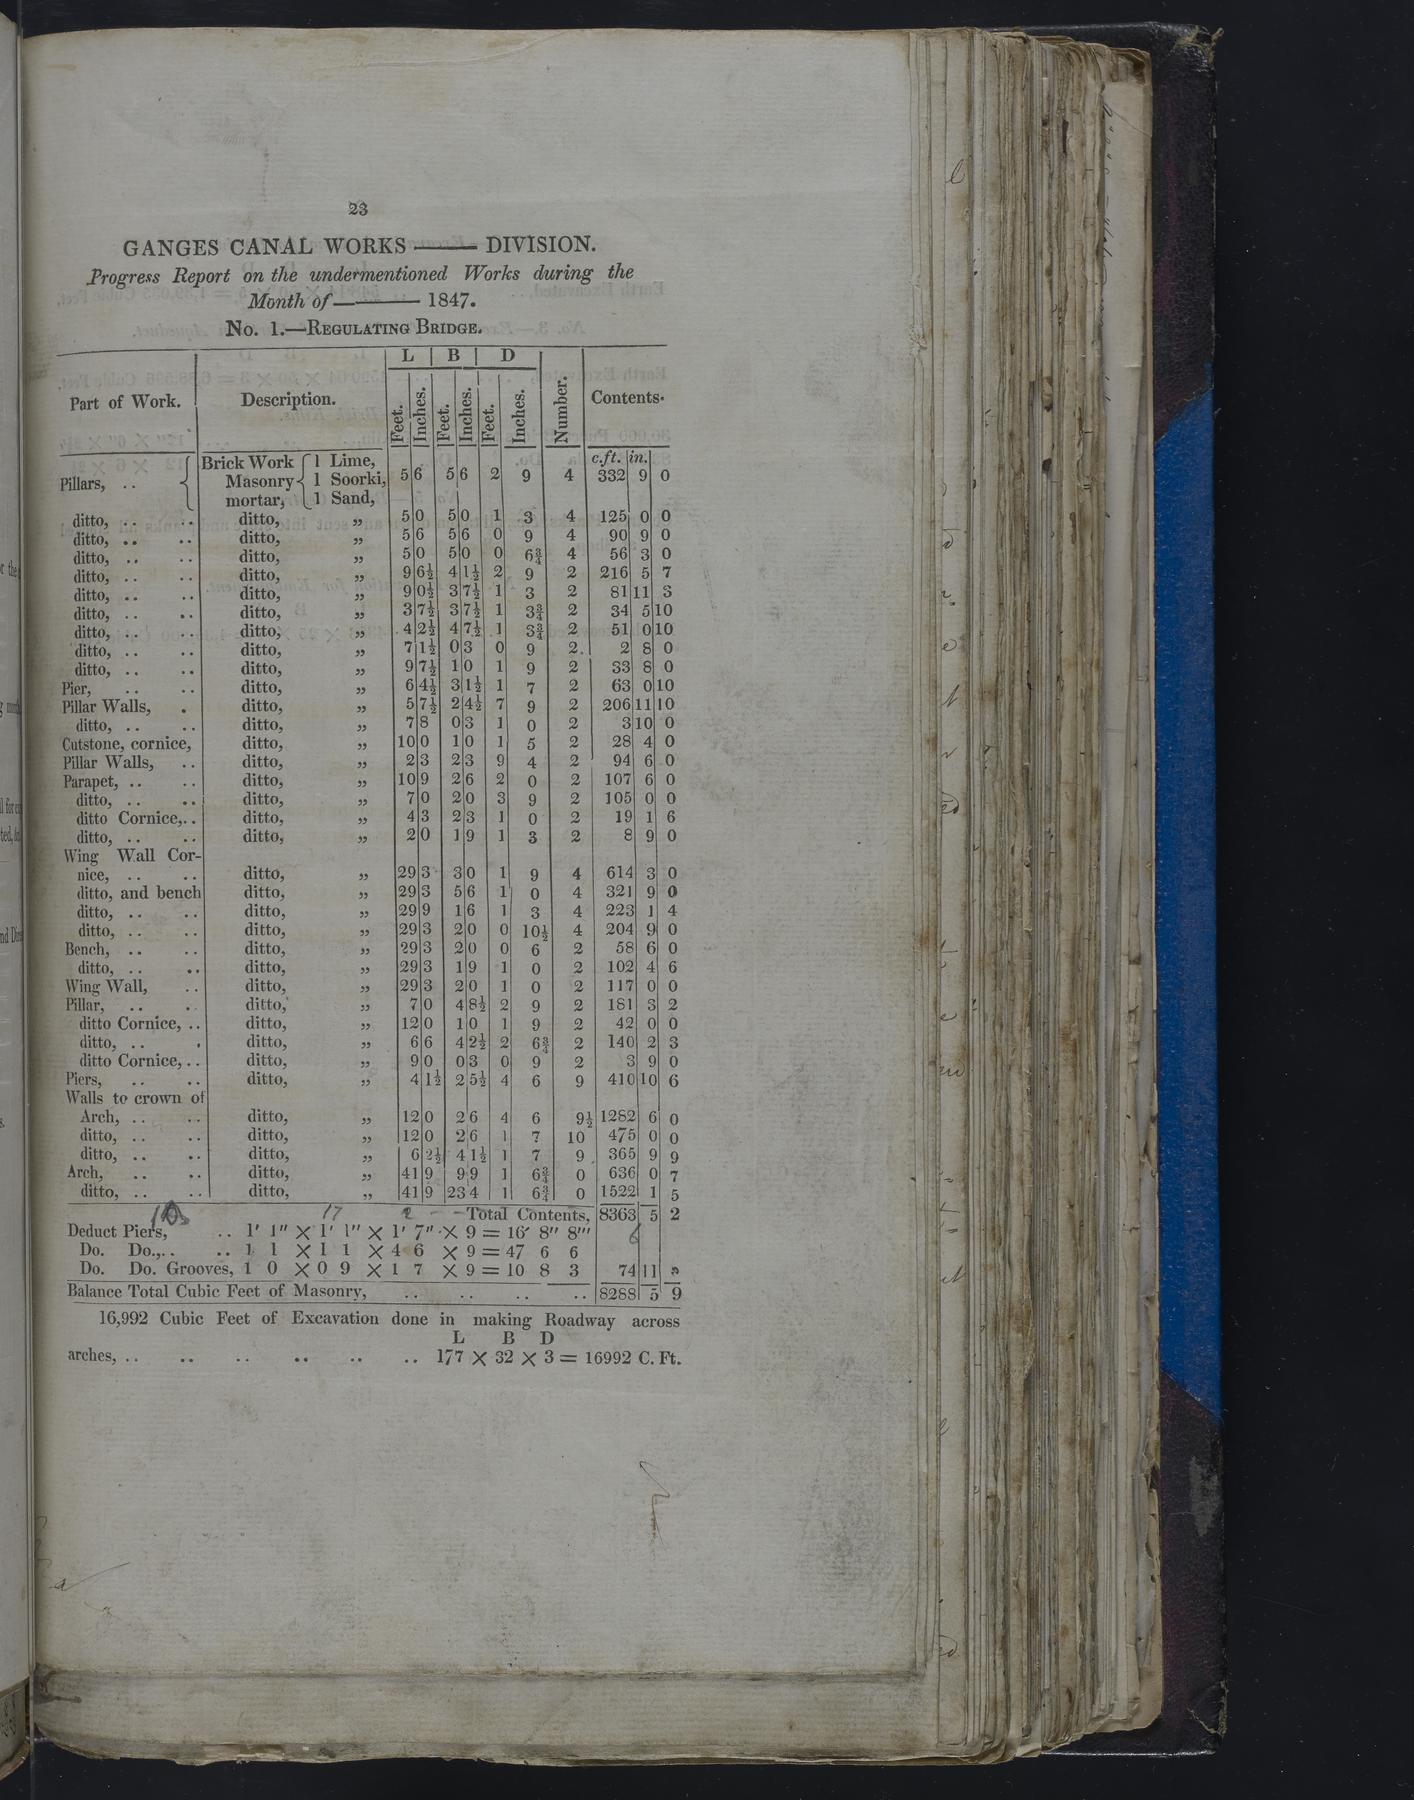 23
GANGES CANAL WORKS ——— DIVISION.
Progress Report on the undermentioned Works during the
Month of ——— 1847.
No. 1.—REGULATING BRIDGE.
Part of Work. Description. L B D Number. Contents.
Feet. Inches. Feet. Inches. Feet. Inches.
c.ft. in.
Brick Work 1 Lime,
Pillars, .. Masonry 1 Soorki, 5 6 5 6 2 9 4 332 9 0
mortar, 1 Sand,
ditto, .. .. ditto, „ 5 0 5 0 1 3 4 125 0 0
ditto, .. .. ditto, „ 5 6 5 6 0 9 4 90 9 0
ditto, .. .. ditto, „ 5 0 5 0 0 6¾ 4 56 3 0
ditto, .. .. ditto, „ 9 6½ 4 1½ 2 9 2 216 5 7
ditto, .. .. ditto, „ 9 0½ 3 7½ 1 3 2 81 11 3
ditto, .. .. ditto, „ 3 7½ 3 7½ 1 3¾ 2 34 5 10
ditto, .. .. ditto, „ 4 2½ 4 7½ 1 3¾ 2 51 0 10
ditto, .. .. ditto, „ 7 1½ 0 3 0 9 2 2 8 0
ditto, .. .. ditto, „ 9 7½ 1 0 1 9 2 33 8 0
Pier, .. .. ditto, „ 6 4½ 3 1½ 1 7 2 63 0 10
Pillar Walls, . ditto, „ 5 7½ 2 4½ 7 9 2 206 11 10
ditto, .. .. ditto, „ 7 8 0 3 1 0 2 3 10 0
Cutstone, cornice, ditto, „ 10 0 1 0 1 5 2 28 4 0
Pillar Walls, .. ditto, „ 2 3 2 3 9 4 2 94 6 0
Parapet, .. .. ditto, „ 10 9 2 6 2 0 2 107 6 0
ditto, .. .. ditto, „ 7 0 2 0 3 9 2 105 0 0
ditto Cornice,.. ditto, „ 4 3 2 3 1 0 2 19 1 6
ditto, .. .. ditto, „ 2 0 1 9 1 3 2 8 9 0
Wing Wall Cor-
nice, .. .. ditto, „ 29 3 3 0 1 9 4 614 3 0
ditto, and bench ditto, „ 29 3 5 6 1 0 4 321 9 0
ditto, .. .. ditto, „ 29 9 1 6 1 3 4 223 1 4
ditto, .. .. ditto, „ 29 3 2 0 0 10½ 4 204 9 0
Bench, .. .. ditto, „ 29 3 2 0 0 6 2 58 6 0
ditto, .. .. ditto, „ 29 3 1 9 1 0 2 102 4 6
Wing Wall, .. ditto, „ 29 3 2 0 1 0 2 117 0 0
Pillar, .. . ditto, „ 7 0 4 8½ 2 9 2 181 3 2
ditto Cornice, .. ditto, „ 12 0 1 0 1 9 2 42 0 0
ditto, .. . ditto, „ 6 6 4 2½ 2 6¾ 2 140 2 3
ditto Cornice,.. ditto, „ 9 0 0 3 0 9 2 3 9 0
Piers, .. .. ditto, „ 4 1½ 2 5½ 4 6 9 410 10 6
Walls to crown of
Arch, .. .. ditto, „ 12 0 2 6 4 6 9½ 1282 6 0
ditto, .. .. ditto, „ 12 0 2 6 1 7 10 475 0 0
ditto, .. .. ditto, „ 6 2½ 4 1½ 1 7 9 365 9 9
Arch, .. .. ditto, „ 41 9 9 9 1 6¾ 0 636 0 7
ditto, .. .. ditto, „ 41 9 23 4 1 6¾ 0 1522 1 5
17 2 Total Contents, 8363 5 2
Deduct Piers, .. 1' 1" × 1' 1" × 1' 7" × 9 = 16' 8" 8''' 6
Do. Do.,.. .. 1 1 × 1 1 × 4 6 × 9 = 47 6 6
Do. Do. Grooves, 1 0 × 0 9 × 1 7 × 9 = 10 8 3 74 11
Balance Total Cubic Feet of Masonry, .. .. .. .. 8288 5 9
16,992 Cubic Feet of Excavation done in making Roadway across
L B D
arches, .. .. .. .. .. .. 177 × 32 × 3 = 16992 C. Ft.